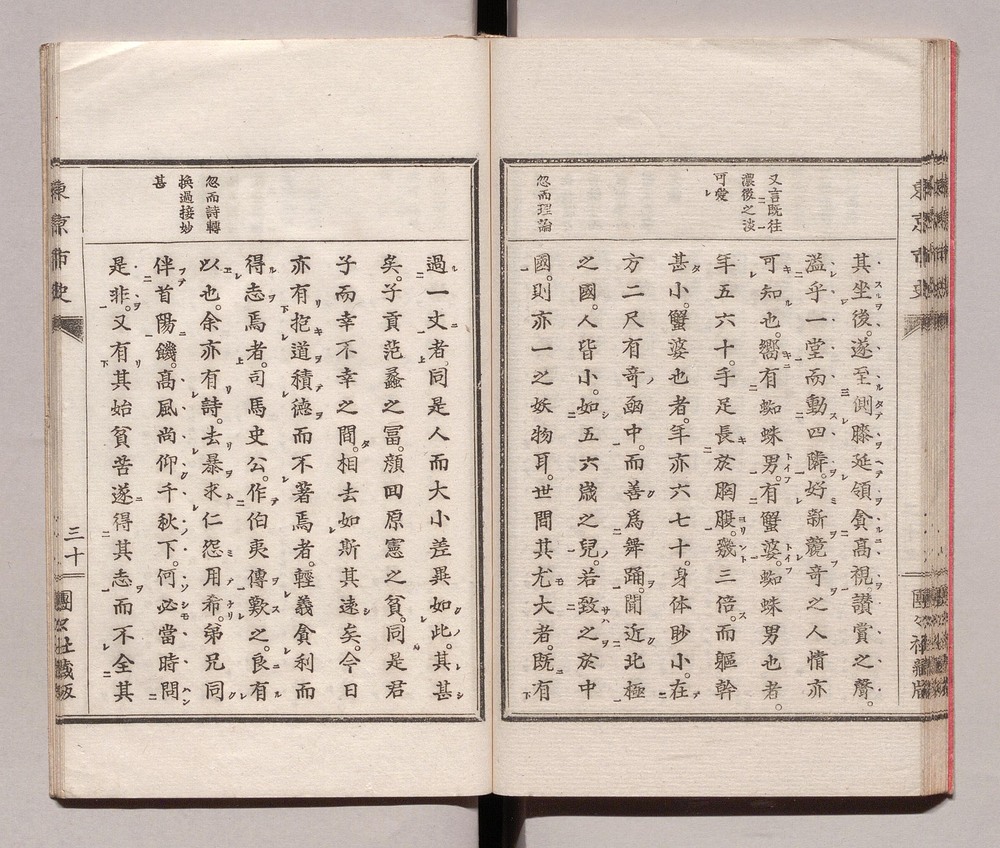 東京市史
又言既往
濃後之淡
可愛
忽而理論
其坐後。遂至側膝延領貪高視。讃賞之聲。
溢乎一堂而動四隣。好新競奇之人情亦
可知也。嚮有蜘蛛男。有蟹婆。蜘蛛男也者。
年五六十。手足長於胸腹。幾三倍。而軀幹
甚小。蟹婆也者。年亦六七十。身体眇小。在
方二尺有奇凾中。而善爲舞踊。聞近北極
之國。人皆小。如五六歳之兒。若致之於中
國。則亦一之妖物耳。世間其尤大者。既有
忽而詩轉
換過接妙
甚
過一丈者。同是人而大小差異如此。其甚
矣。子貢范蠡之冨。顔回原憲之貧。同是君
子而幸不幸之間。相去如斯其遠矣。今日
亦有抱道積德而不著焉者。輕義貪利而
得志焉者。司馬史公。作伯夷傳歎之。良有
以也。余亦有詩。去暴求仁怨用希。弟兄同
伴首陽饑。高風尚仰千秋下。何必當時問
是非。又有其始貧苦遂得其志而不全其
東京市史
三十
團々社藏版